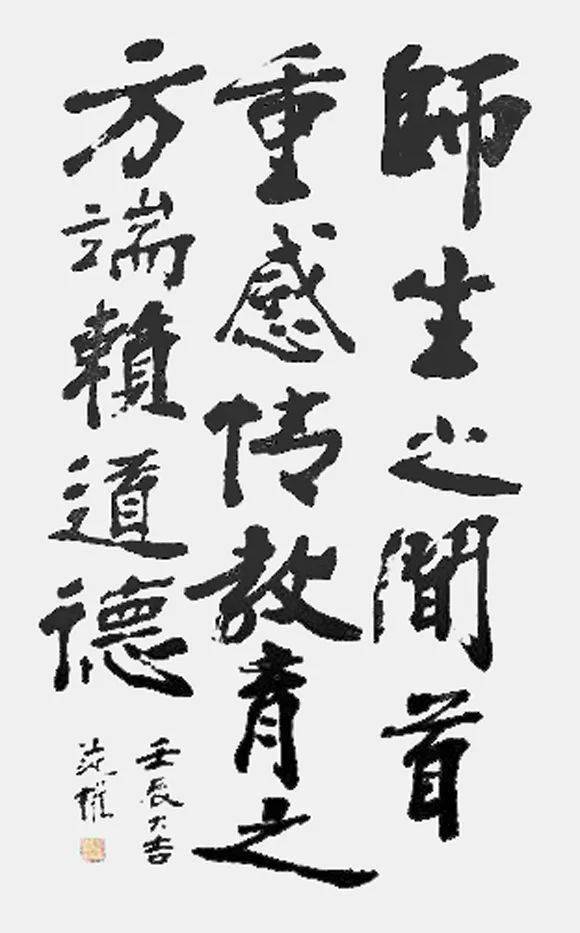 師生之間首
重感情教育之
方端賴道德
壬辰大吉